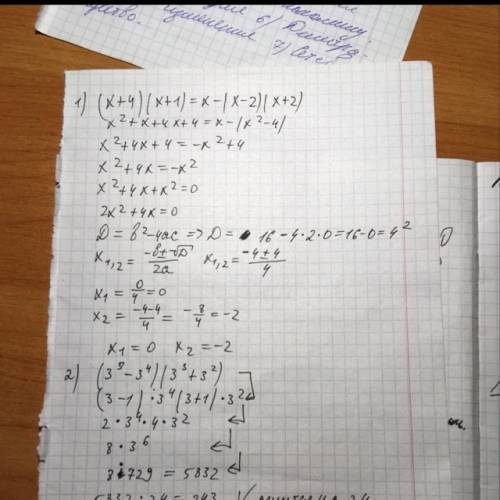 6) Доказ
изменения 7) Ответ
1) (x+4)(x+1)=x-(x-2)(x+2)
x²+x+4x+4=x-(x²-4)
x²+4x+4=-x²+4
x²+4x=-x²
x²+4x+x²=0
2x²+4x=0
D=b²-4ac => D= 16-4·2·0=16-0=4²
x₁,₂=(-b±√D)/2a x₁,₂=(-4±4)/4
x₁=0/4=0
x₂=(-4-4)/4=-8/4=-2
x₁=0 x₂=-2
2) (3⁵-3⁴)(3³+3²)
(3-1)·3⁴(3+1)·3²
2·3⁴·4·3²
8·3⁶
8·729=5832
5832:24=243